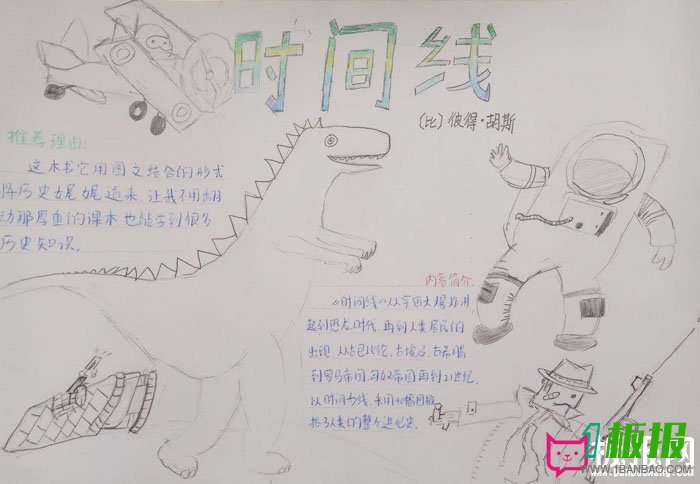 时间线
〔比〕彼得·胡斯
推荐理由:
这本书它用图文结合的形式
将历史娓娓道来,让我不用翻
动那厚重的课本也能学到很多
历史知识。
内容简介
《时间线》从宇宙大爆炸讲
起到恐龙时代,再到人类居民的
出现,从古巴比伦、古埃及、古希腊
到罗马帝国、匈奴帝国再到21世纪,
以时间为线,采用
括了人类的整个进化史.
1板报
WWW.1BANBAO.COM